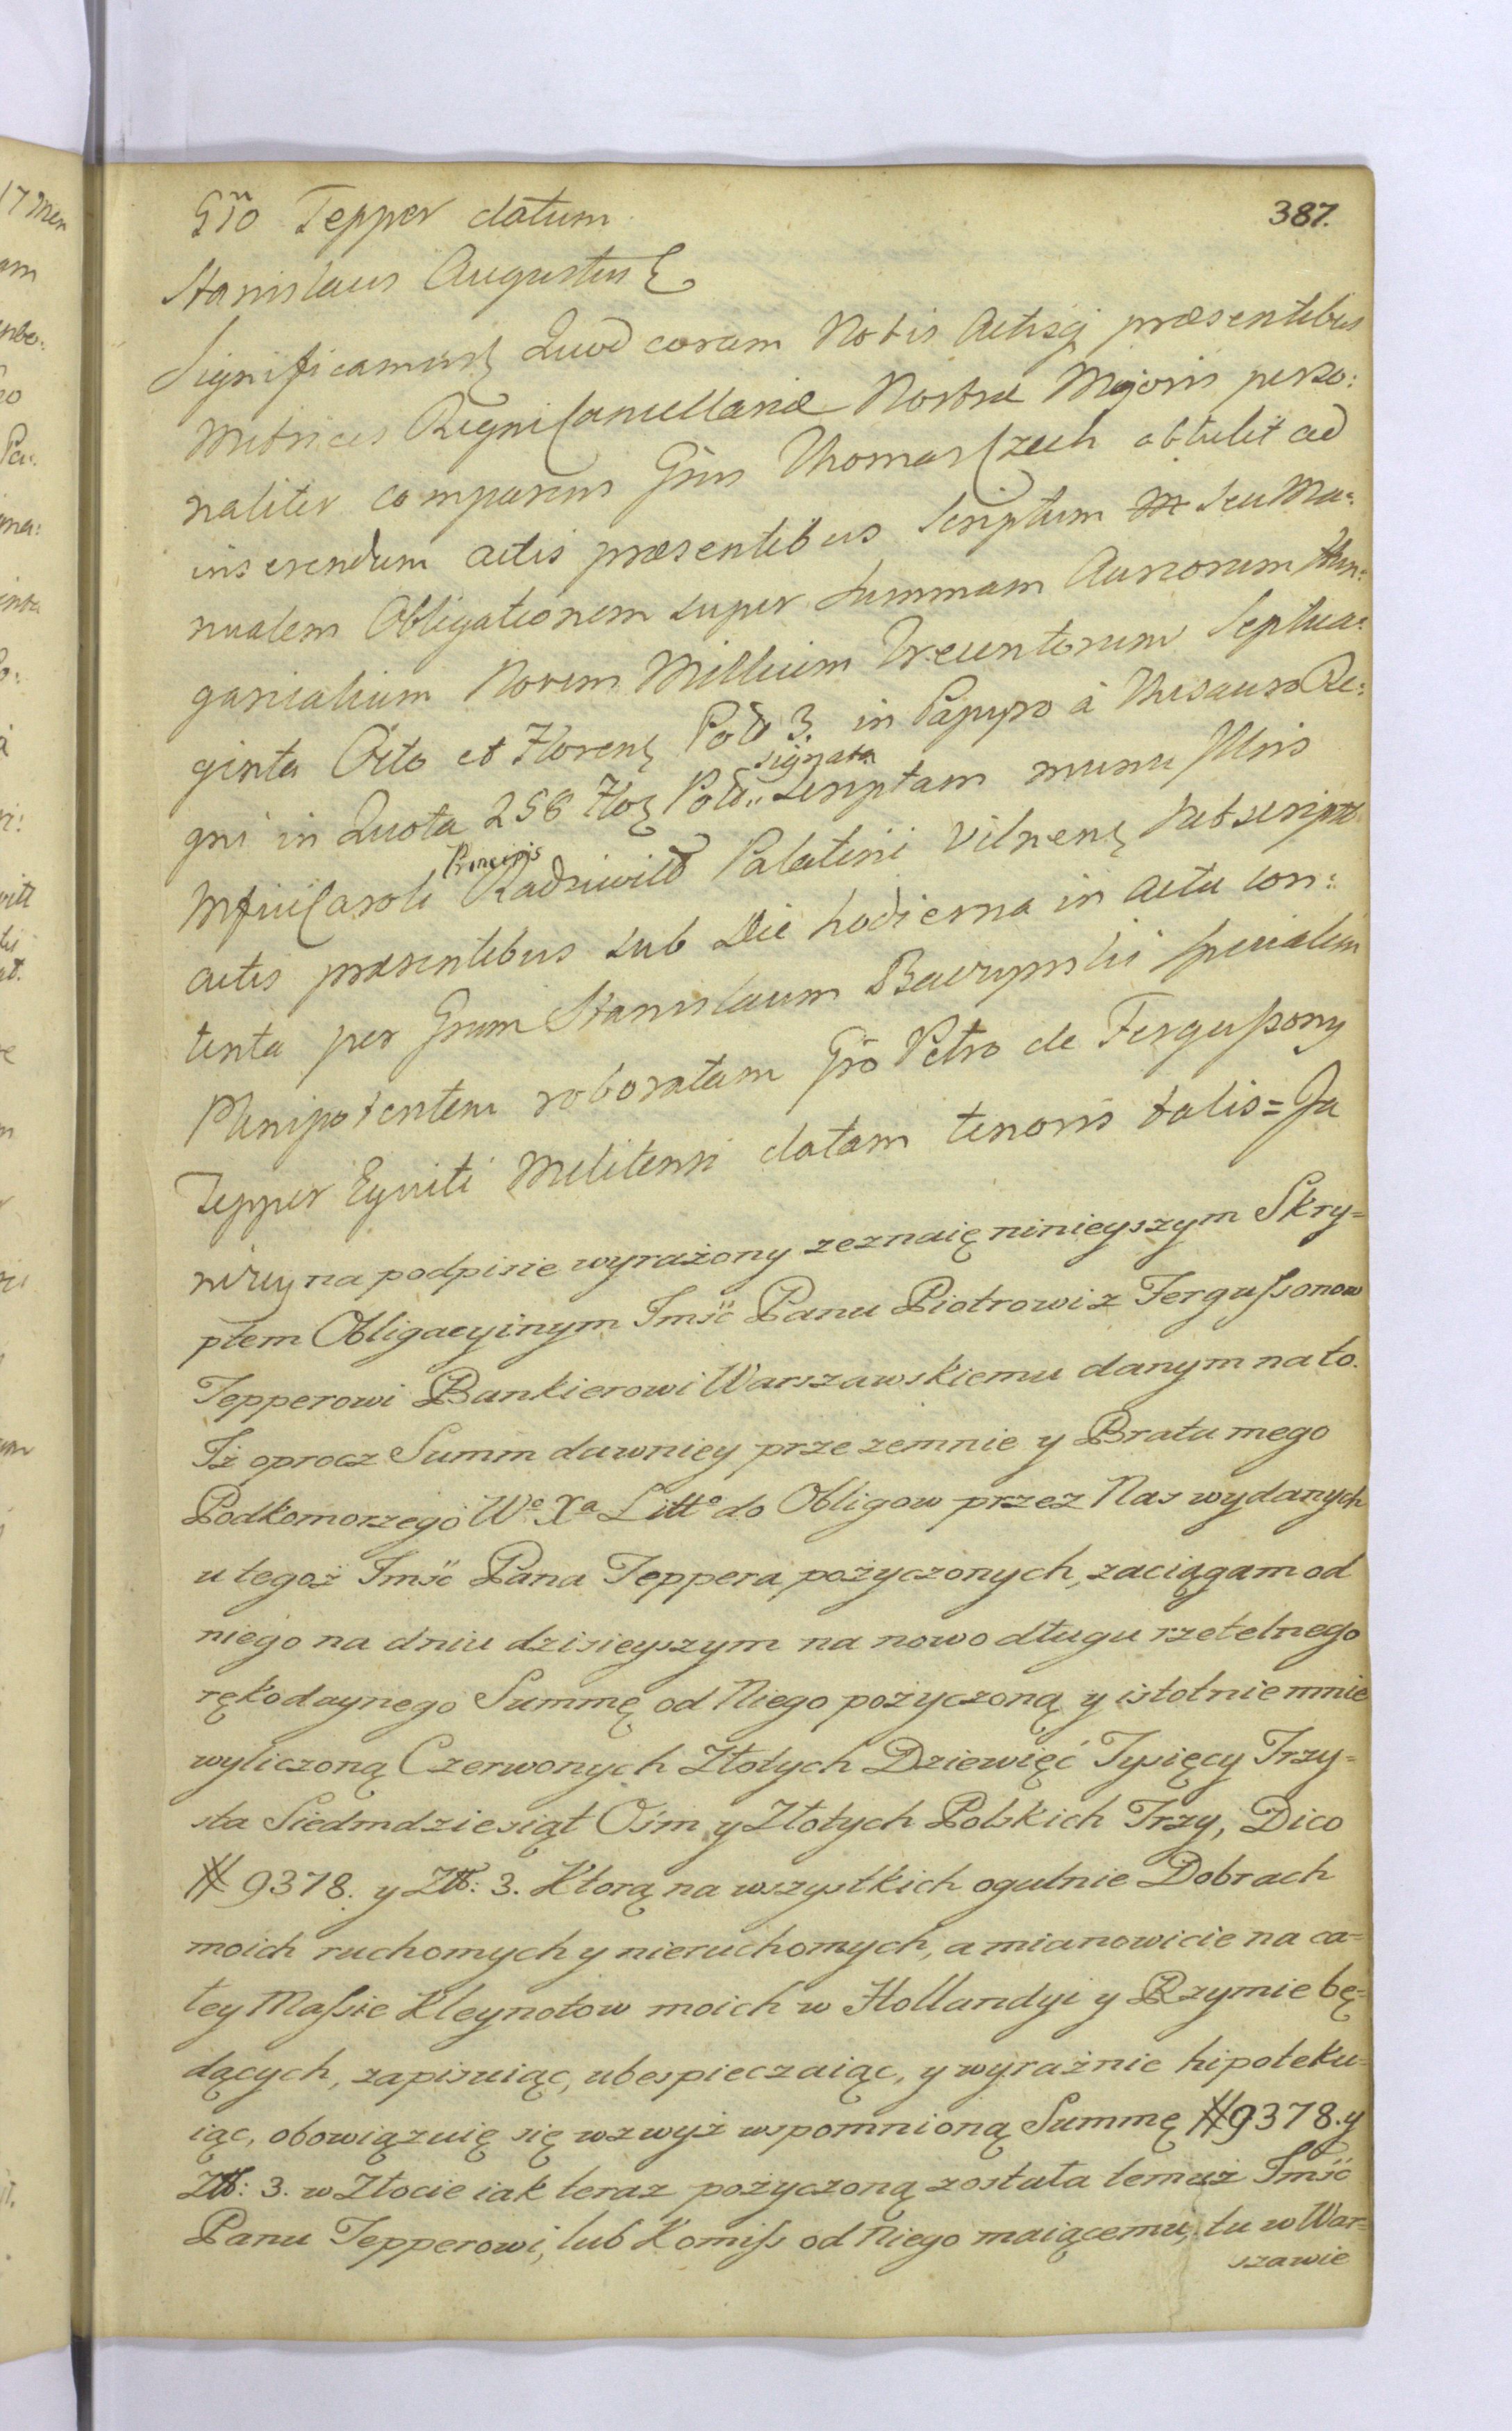 387.
Gno Tepper datum
Stanislaus Augustus
Significamus Quod coram Nobis Actisq praesentibus
Metrices Regni Cancellariae Nostrae Majoris perso:
naliter comparens Gnus Thomas Czech obtulit ad
inserendum actis praesentibus Scriptum seu Ma:
nualem Obligationem super Summam Aureorum Hun:
garicalium Novem Millium Trecentorum Septua:
ginta Octo et Floren Pol 3. in Papyro à Thesauro Re:
gni in Quota 256 Flor Pol. signata Scriptam manu Illris
Mfici Caroli Principis Radziwiłł Palatini Vilnen subscriptam
actis praesentibus sub Die hodierna in actu con:
tenta per Gnum Stanislaum specialem
Plenipotentem roboratam Gno Petro de Fergussony
Tepper Equiti Melitensi datam tenoris talis = Ja
niżey na podpisie wyrażony zeznaię ninieyszym Skry=
ptem Obligacyinym Imść Panu Piotrowi z Fergussonow
Tepperowi Bankierowi Warszawskiemu danym na to.
Iż oprocz Summ dawniey przezemnie y Brata mego
Podkomorzego Wo Xa Litto do Obligow przez Nas wydanych
u tegoż Imść Pana Teppera pożyczonych, zaciągam od
niego na dniu dzisieyszym na nowo długu rzetelnego
rękodaynego Summę od Niego pożyczoną y istotnie mnie
wyliczoną Czerwonych Złotych Dziewięć Tysięcy Trzy=
sta Siedmdziesiąt Ośm y Złotych Polskich Trzy, Dico
# 9378. y Zł: 3. Ktorą na wszystkich ogulnie Dobrach
moich ruchomych y nieruchomych, a mianowicie na ca=
łey Massie Kleynotow moich w Hollandyi y Rzymie bę=
dących, zapisuiąc, ubespieczaiąc, y wyraźnie hipoteku=
iąc, obowiązuię się wzwyż wspomnioną Summę # 9378. y
Zł: 3. w Złocie iak teraz pożyczoną została temuż Imść
Panu Tepperowi, lub Komiss od Niego maiącemu, tu w War=
szawie